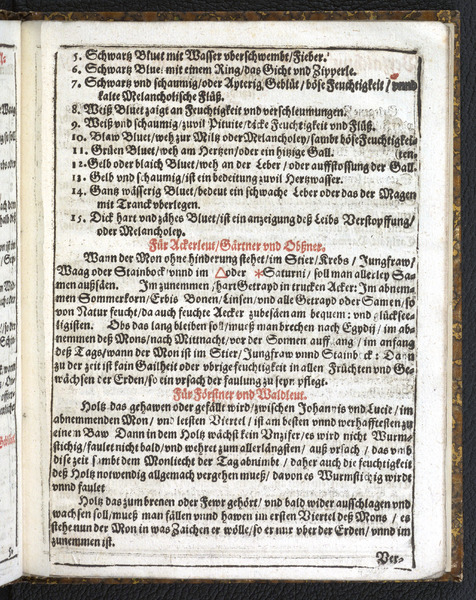 5. Schwartz Bluet mit Wasser vberschwembt/Fieber.
6. Schwartz Bluet mit einem Ring/das Gicht vnd Zipperle.
7. Schwartz vnd schaumig/oder Ayterig Geblüt/böse Feuchtigkeit/vnnd
kalte Melancholische Flüß.
8. Weiß Bluet zaigt an Feuchtigkeit vnd verschleumungen.
9. Weiß vnd schaumig/zuvil Pituite/dicke Feuchtigkeit vnd Flüß.
10. Blaw Bluet/weh zur Miltz oder Melancholey/sambt böse Feuchtigkei-
11. Grüen Bluet/weh am Hertzen/oder ein hitzige Gall. (ten.
12. Gelb oder blaich Bluet/weh an der Leber/oder auffstossung der Gall.
13. Gelb vnd schaumig/ist ein bedeitung zuvil Hertzwasser.
14. Gantz wässerig Bluet/bedeut ein schwache Leber oder das der Magen
mit Tranck vberlegen.
15. Dick hart vnd zähes Bluet/ist ein anzeigung deß Leibs Verstopffung/
oder Melancholey.
Für Ackerleut/Gärtner vnd Obßner.
Wann der Mon ohne hinderung stehet/im Stier/Krebs/Jungfraw/
Waag oder Stainbock/vnnd im △ oder ⚹ Saturni/soll man allerley Sa-
men außsäen. Im zunemmen/hart Getrayd in trucken Acker: Im abnem-
men Sommerkorn/Erbis Bonen/Linsen/vnd alle Getrayd oder Samen/so
von Natur feucht/da auch feuchte Aecker zubesäen am bequem: vnd glücksee-
ligisten. Obs das lang bleiben soll/mueß man brechen nach Egydij/im ab-
nemmen deß Mons/nach Mittnacht/vor der Sonnen auffgang/im anfang
deß Tags/wann der Mon ist im Stier/Jungfraw vnnd Stainbock: Dann
zu der zeit ist kain Gailheit oder vbrige feuchtigkeit in allen Früchten vnd Ge-
wächsen der Erden/so ein vrsach der faulung zu seyn pflegt.
Für Förstner vnd Waldleut.
Holtz das gehawen oder gefällt wird/zwischen Johannis vnd Lucie/im
abnemmenden Mon/vnd letsten Viertel/ist am besten vnnd werhafftesten zu
einem Baw Dann in dem Holtz wächst kein Vnzifer/es wird nicht Wurm-
stichig/faulet nicht bald/vnd wehret zum allerlängsten/auß vrsach/das vmb
dise zeit sambt dem Monliecht der Tag abnimbt/daher auch die feuchtigkeit
deß Holtz notwendig allgemach vergehen mueß/davon es Wurmstichig wirdt
vnnd faulet
Holtz das zum brenen oder Fewr gehört/vnd bald wider ausschlagen vnd
wachsen soll/mueß man fällen vnnd hawen im ersten Viertel deß Mons/es
stehe nun der Mon in was Zaichen er wölle/so er nur vber der Erden/vnnd im
zunemmen ist.
Ver-